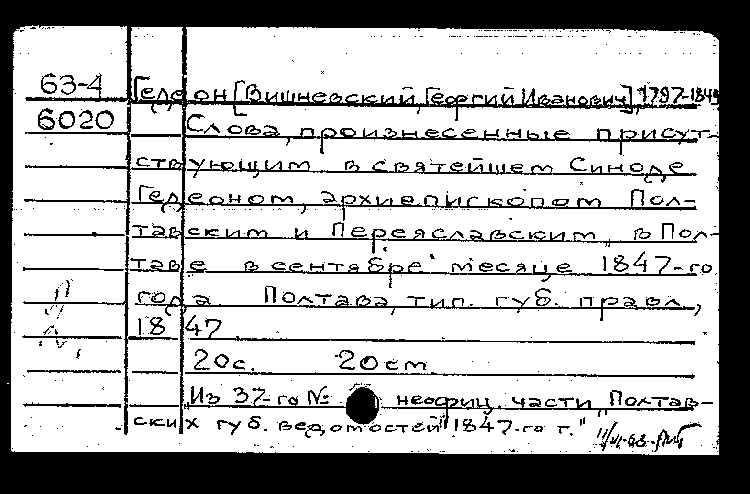 63-4 Гедеон [Вишневский, Георгий Иванович], 1797-1849
6020 Слова, произнесенные присут-
ствующим в святейшем Синоде
Гедеоном, архиепископом Пол-
тавским и Переяславским, в Пол-
таве в сентябре месяце 1847-го
года. Полтава, тип. губ. правл.,
1847
20с. 20 см
Из 37-го № неофиц. части "Полтав-
ских губ. ведомостей" 1847-го г."